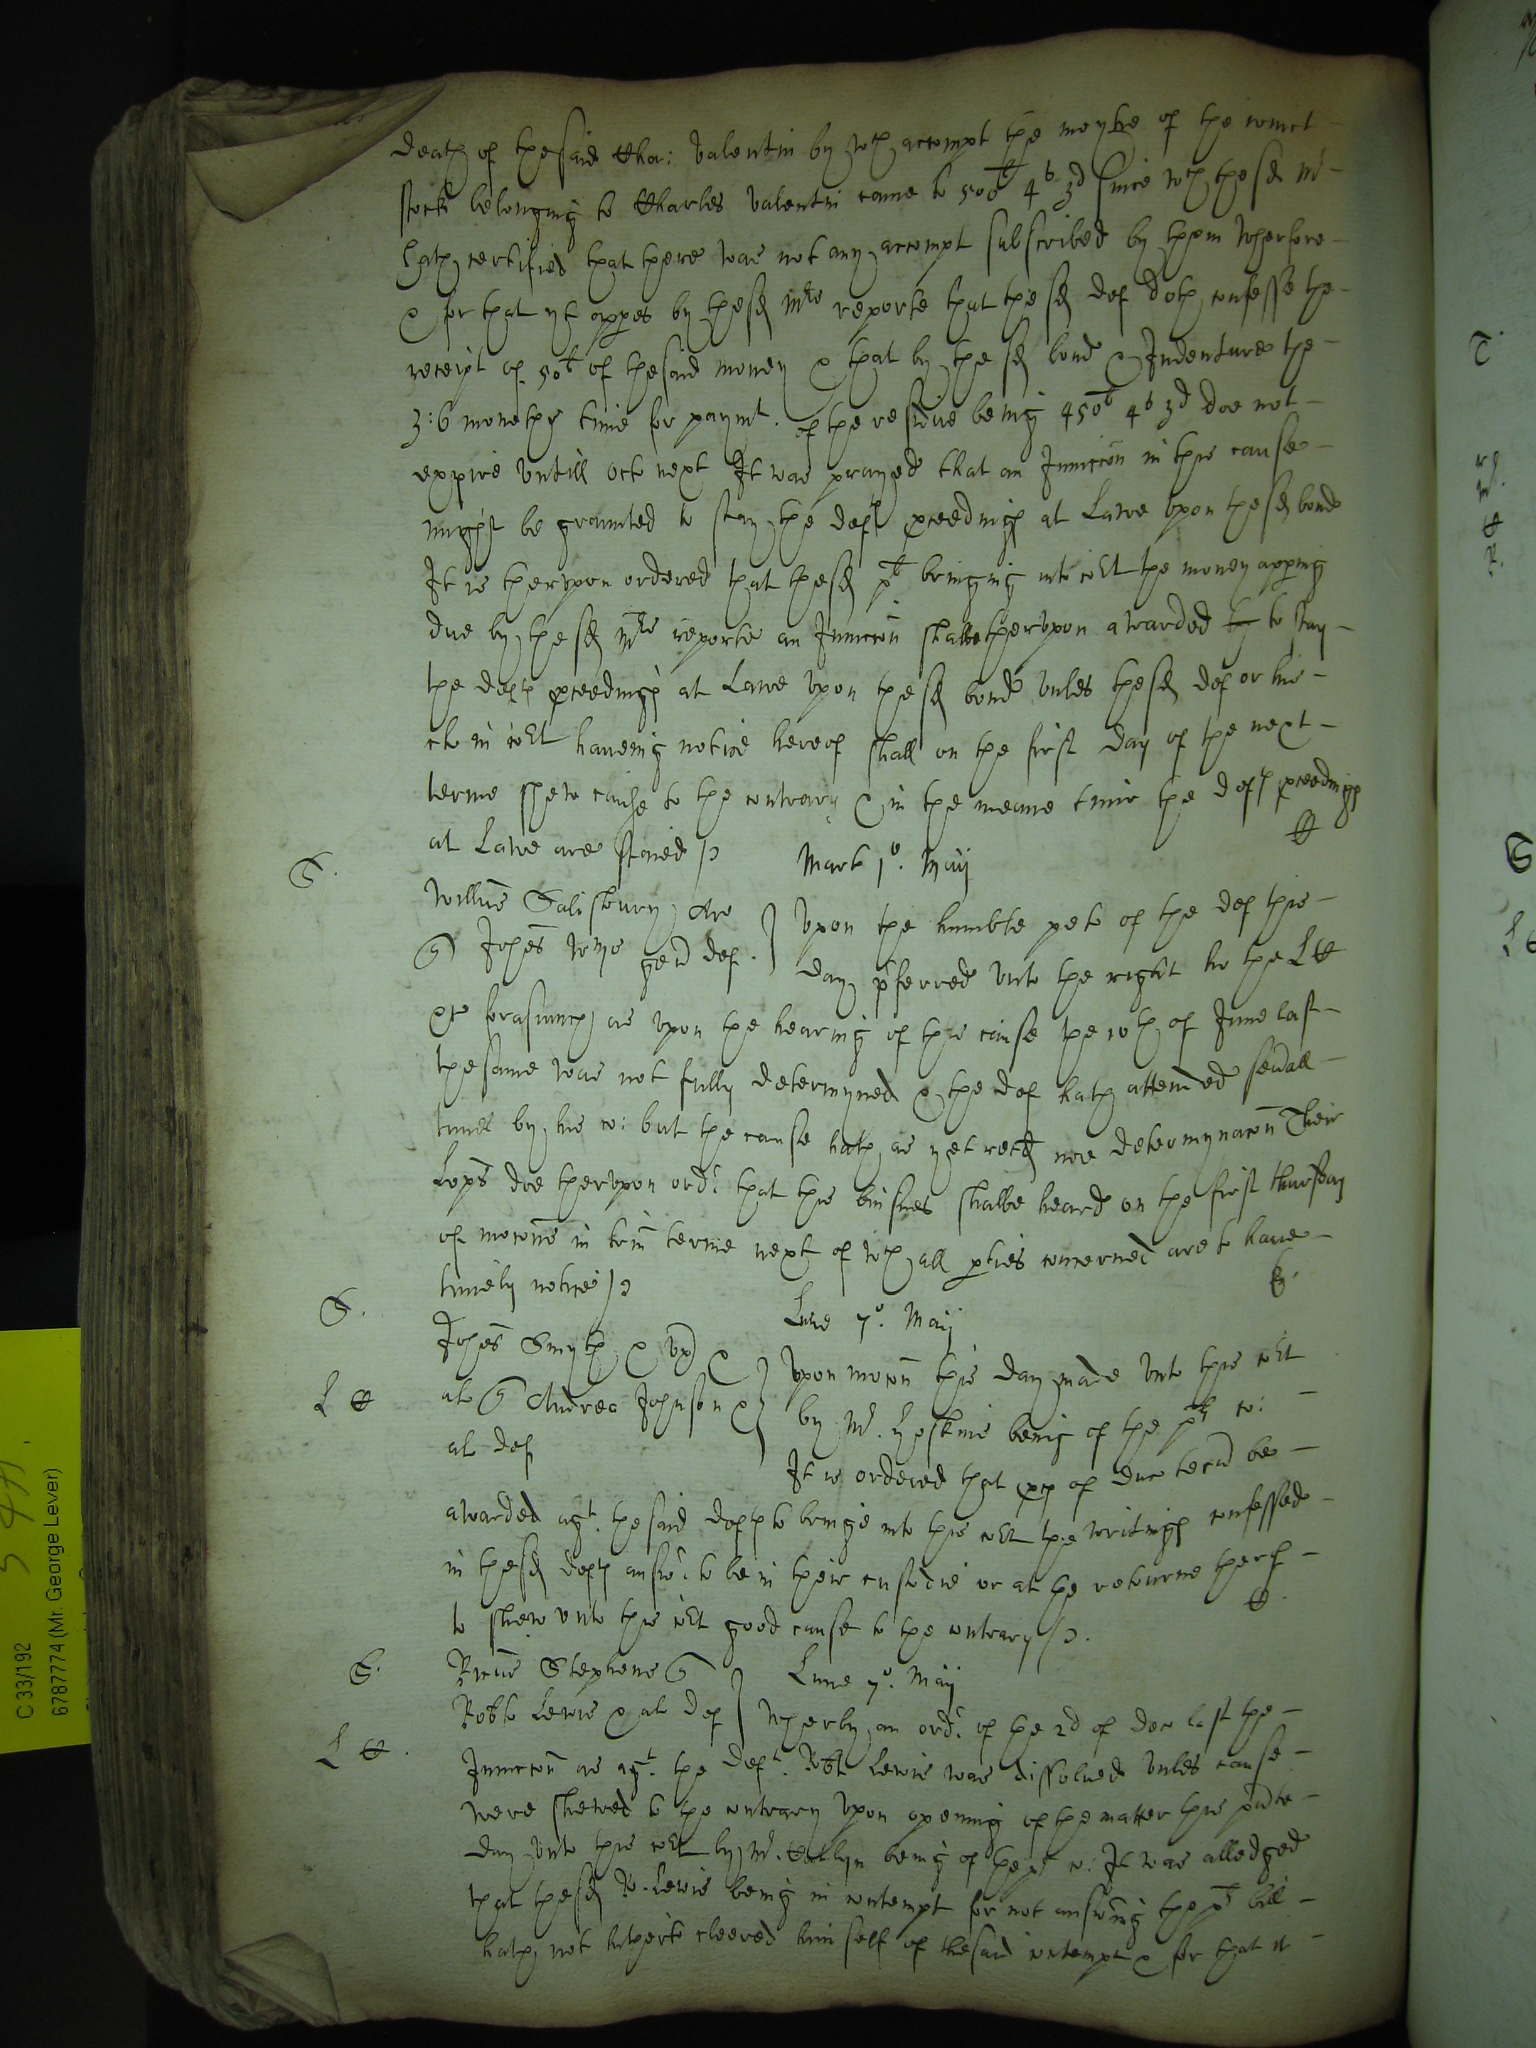 death of thesaid Cha: Valentin by wch accompt the moytie of the ioinct
stock belonging to Charles Valentin came to 500li 4s 3d since wch thesd Mr
hath certified that there was not any accompt subscribed by them Wherfore
& for that yt appes by thesd Mrs reporte that thesd def doth confesse the
receipt of 50li of thesaid money & that by the sd bond & Indenture the
3:6 moneths time for paymt. of the residue being 450li 4s 3d doe not
expire vntill Octo next It was prayed that an Iniuccon in this cause
might be graunted to stay the defts pceedings at Lawe vpon thesd bond
It is thervpon ordered that thesd plt bringing into cort the money apping
due by thesd Mrs reporte an Iniuccon shalbe thervpon awarded to stay
the defts pceedings at Lawe vpon thesd bond vnles thesd def or his
clo in cort haveing notice hereof shall on the first day of the next
terme shew cause to the contrary & in the meane time the defts pceedings
at Lawe are staied
S.
Mart 1o. Maij
Willms Salisbury Ar
Johes Wms gen def.
Vpon the humble peto of the def this
day pferred vnto the right ho the L C
&c forasmuch as vpon the hearing of this cause the 10th of June last
thesame was not fully determyned & the def hath attended seuall
times by his co: but the cause hath as yet recd noe determynacon Their
Lopps doe thervpon ordr that the busines shalbe heard on the first thursday
of mocons in trin terme next of wch all pties concerned are to haue
timely notice
S.
Lune 7o. Maij
Johes Smyth & vx &
L C
al Andrea Johnson &
al def
Vpon mocon this day made vnto this cort
by Mr. Hoskins being of the plts co:
It is ordered that pcs of duc tecu be
awarded agt. thesaid defts to bringe into this cort the writings confessed
in thesd defts answr. to be in their custodie or at the retourne therof
to shew vnto this cort good cause to the contrary
S.
Ricus Stephens
Lune 7o. Maij
Robto Lewis & al def
Wherby an ordr. of the 2d of Dec last the
L C.
Iniuccon as agt. the deft. Robt Lewis was dissolued vnles cause
were shewed to the contrary Vpon opening of the matter this pnte
day vnto this cort by Mr. being of the plts co: It was alledged
that thesd R. Lewis being in contempt for not answring the plts bill
hath not hitherto cleered himself of thesaid contempt & for that it
C 33/192
6787774 (Mr. George Lever)